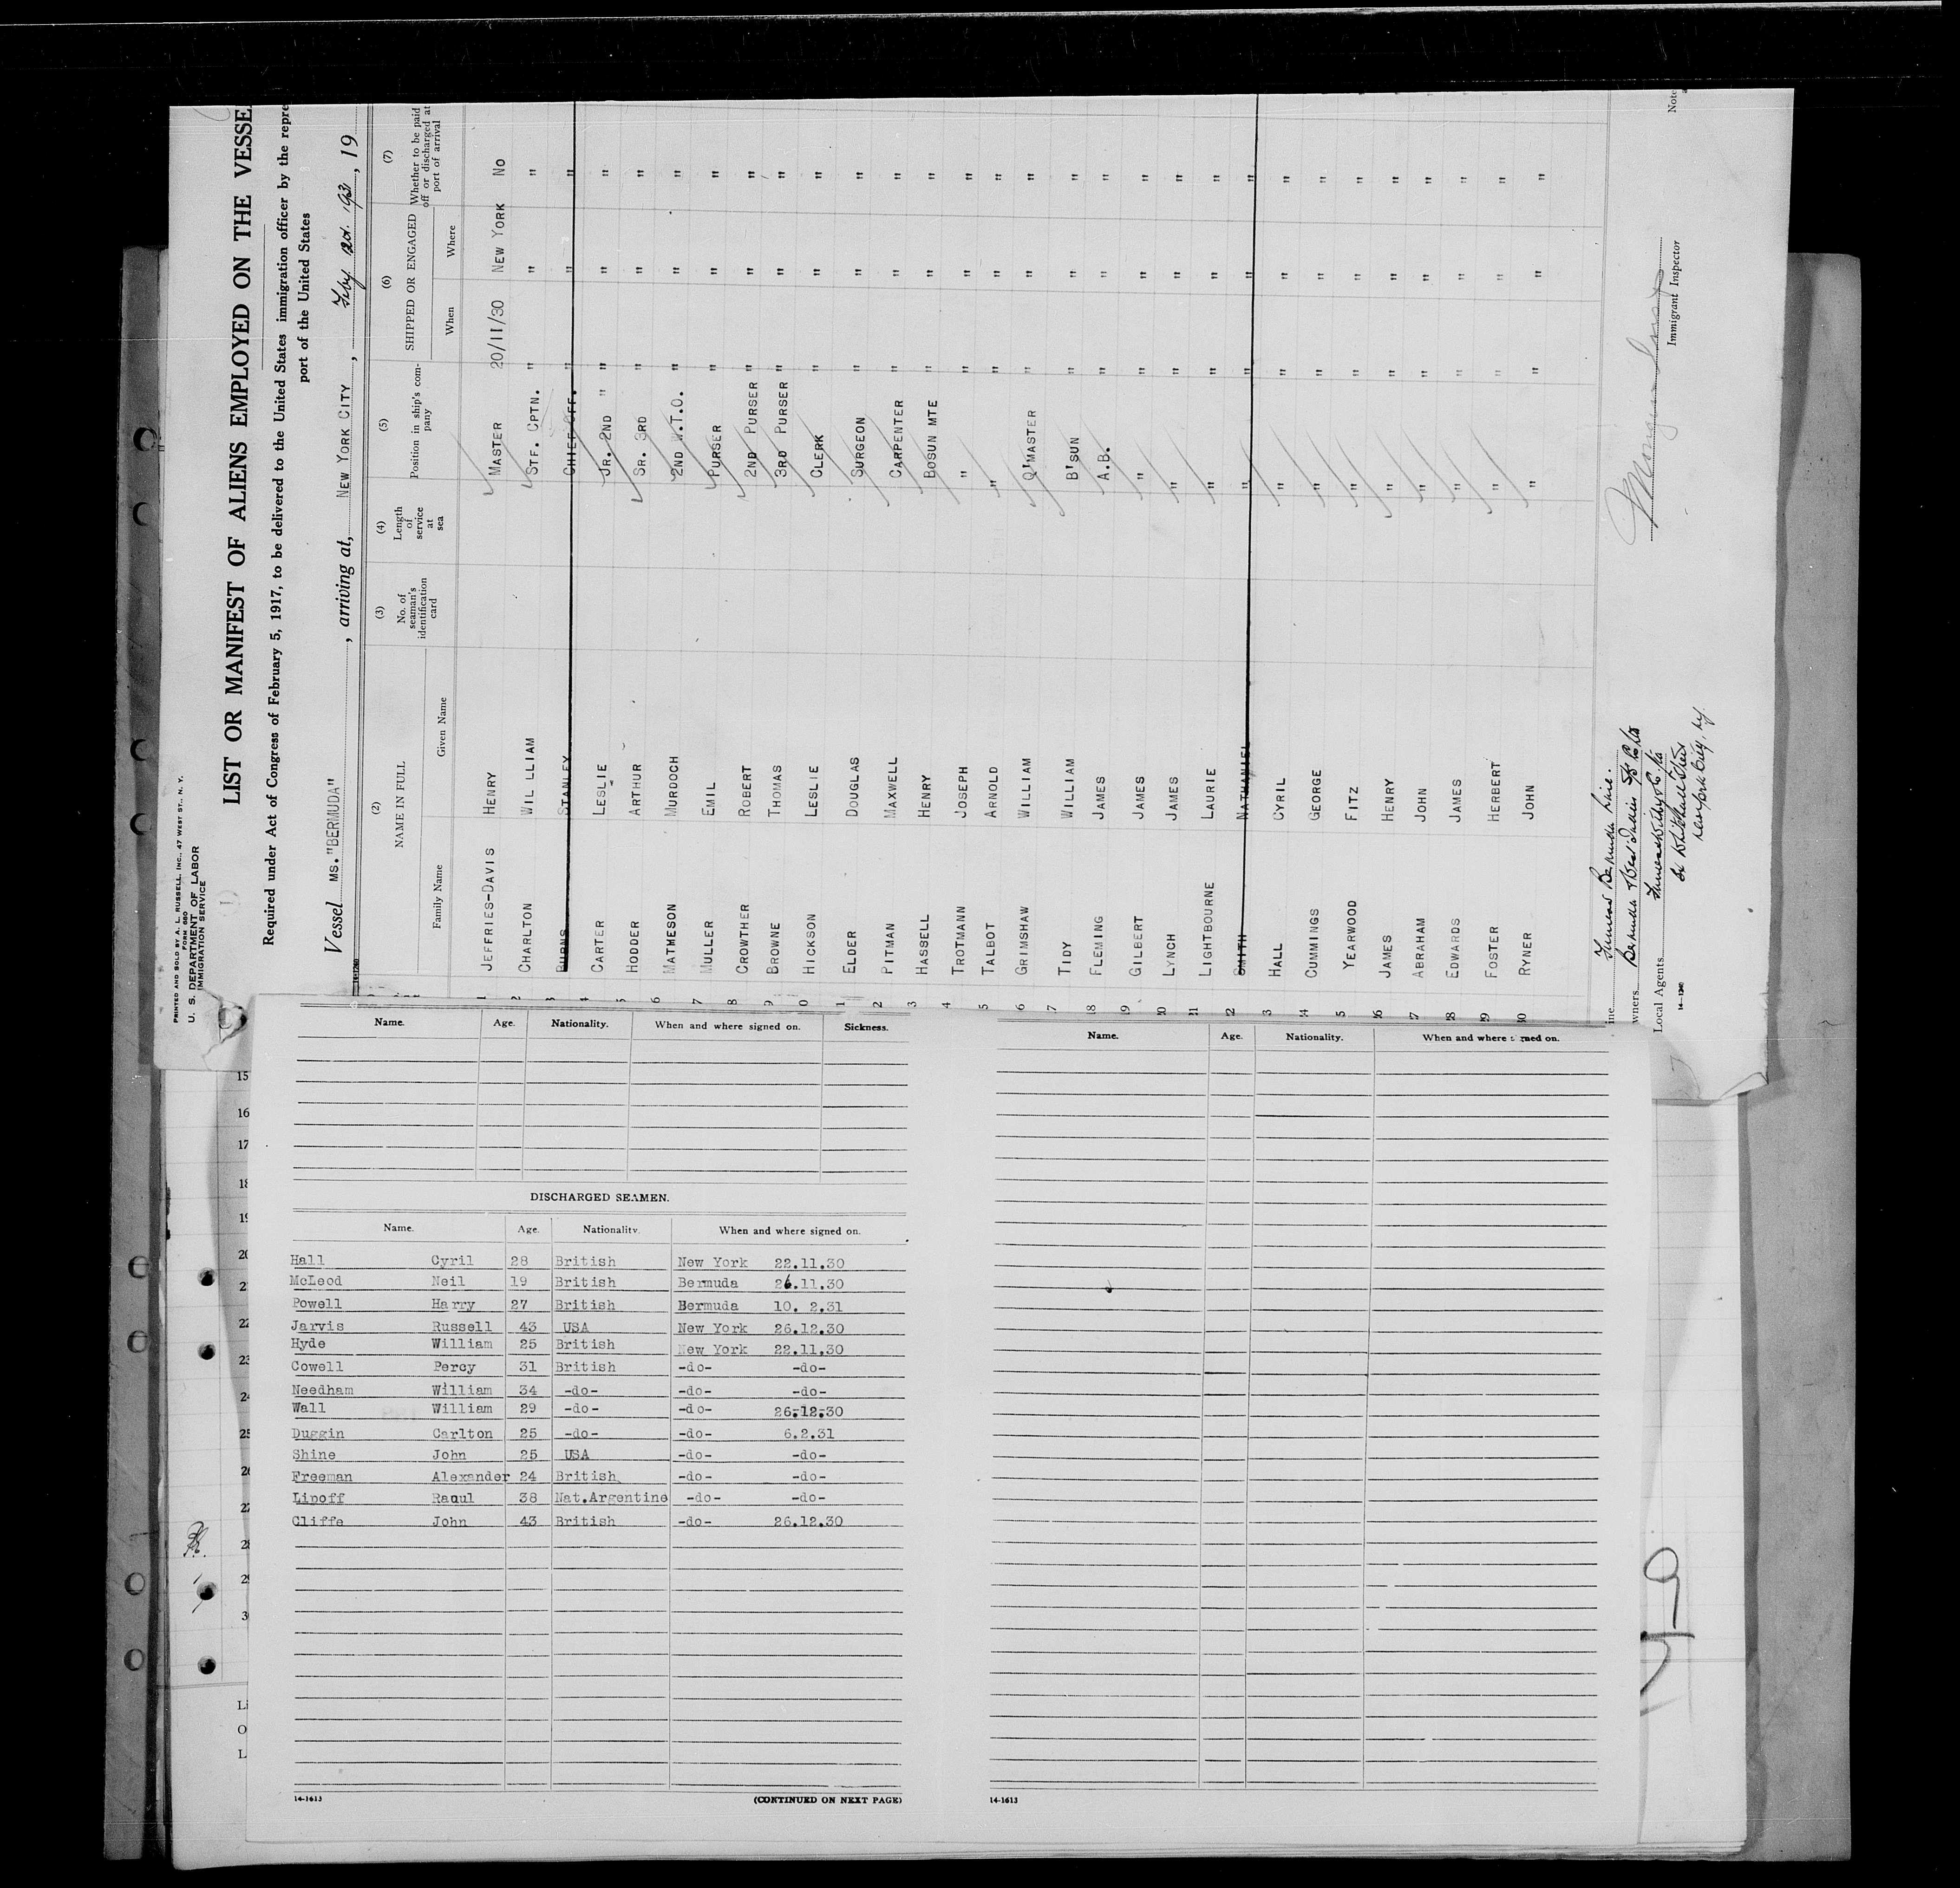 PRINTED AND SOLD BY A. L. RUSSELL, INC., 47 WEST ST., N. Y.
Form 680
U. S. DEPARTMENT OF LABOR
IMMIGRATION SERVICE
LIST OR MANIFEST OF ALIENS EMPLOYED ON THE VESSE
Required under Act of Congress of February 5, 1917, to be delivered to the United States immigration officer by the repre
port of the United States
Vessel MS."BERMUDA", arriving at, NEW YORK CITY, Feby 12th 1931, 19
(2) (3) (4) (5) (6) (7)
NAME IN FULL No. of seaman's identification card Length of service at sea Position in ship's company SHIPPED OR ENGAGED Whether to be paid off or discharged at port of arrival
Family Name Given Name When Where
1 JEFFRIES-DAVIS HENRY MASTER 20/11/30 NEW YORK NO
2 CHARLTON WIL LLIAM STF. CPTN. " " "
3 BURNS STANLEY CHIEF OFF. " " "
4 CARTER LESLIE JR. 2ND " " " "
5 HODDER ARTHUR SR. 3RD " " "
6 MATMESON MURDOCH 2ND W.T.O. " " "
7 MULLER EMIL PURSER " " "
8 CROWTHER ROBERT 2ND PURSER " " "
9 BROWNE THOMAS 3RD PURSER " " "
0 HICKSON LESLIE CLERK " " "
1 ELDER DOUGLAS SURGEON " " "
2 PITMAN MAXWELL CARPENTER " " "
3 HASSELL HENRY BOSUN MTE " " "
4 TROTMANN JOSEPH " " " "
5 TALBOT ARNOLD " " " "
6 GRIMSHAW WILLIAM Q'MASTER " " "
7 TIDY WILLIAM B'SUN " " "
18 FLEMING JAMES A.B. " " "
19 GILBERT JAMES " " " "
20 LYNCH JAMES " " " "
21 LIGHTBOURNE LAURIE " " " "
22 SMITH NATHANIEL " " " "
3 HALL CYRIL " " " "
24 CUMMINGS GEORGE " " " "
5 YEARWOOD FITZ " " " "
26 JAMES HENRY " " " "
27 ABRAHAM JOHN " " " "
28 EDWARDS JAMES " " " "
29 FOSTER HERBERT " " " "
30 RYNER JOHN " " " "
ine Furness Bermuda Line.
wners Bermuda & West Indies SS Co Ltd
Local Agents Furness Withy & Co Ltd
34 Whitehall Street
New York City, N.Y.
14-1240
Immigrant Inspector
Note
Name. Age. Nationality. When and where signed on. Sickness.
DISCHARGED SEAMEN.
Name. Age. Nationality. When and where signed on.
Hall Cyril 28 British New York 22.11.30
McLeod Neil 19 British Bermuda 26.11.30
Powell Harry 27 British Bermuda 10. 2.31
Jarvis Russell 43 USA New York 26.12.30
Hyde William 25 British New York 22.11.30
Cowell Percy 31 British -do- -do-
Needham William 34 -do- -do- -do-
Wall William 29 -do- -do- 26-12-30
Duggin Carlton 25 -do- -do- 6.2.31
Shine John 25 USA -do- -do-
Freeman Alexander 24 British -do- -do-
Lipoff Raoul 38 Nat.Argentine -do- -do-
Cliffe John 43 British -do- 26.12.30
14-1613 (CONTINUED ON NEXT PAGE)
Name. Age. Nationality. When and where signed on.
14-1613
15
16
17
18
19
20
21
22
23
24
25
26
27
28
29
30
Li
O
L